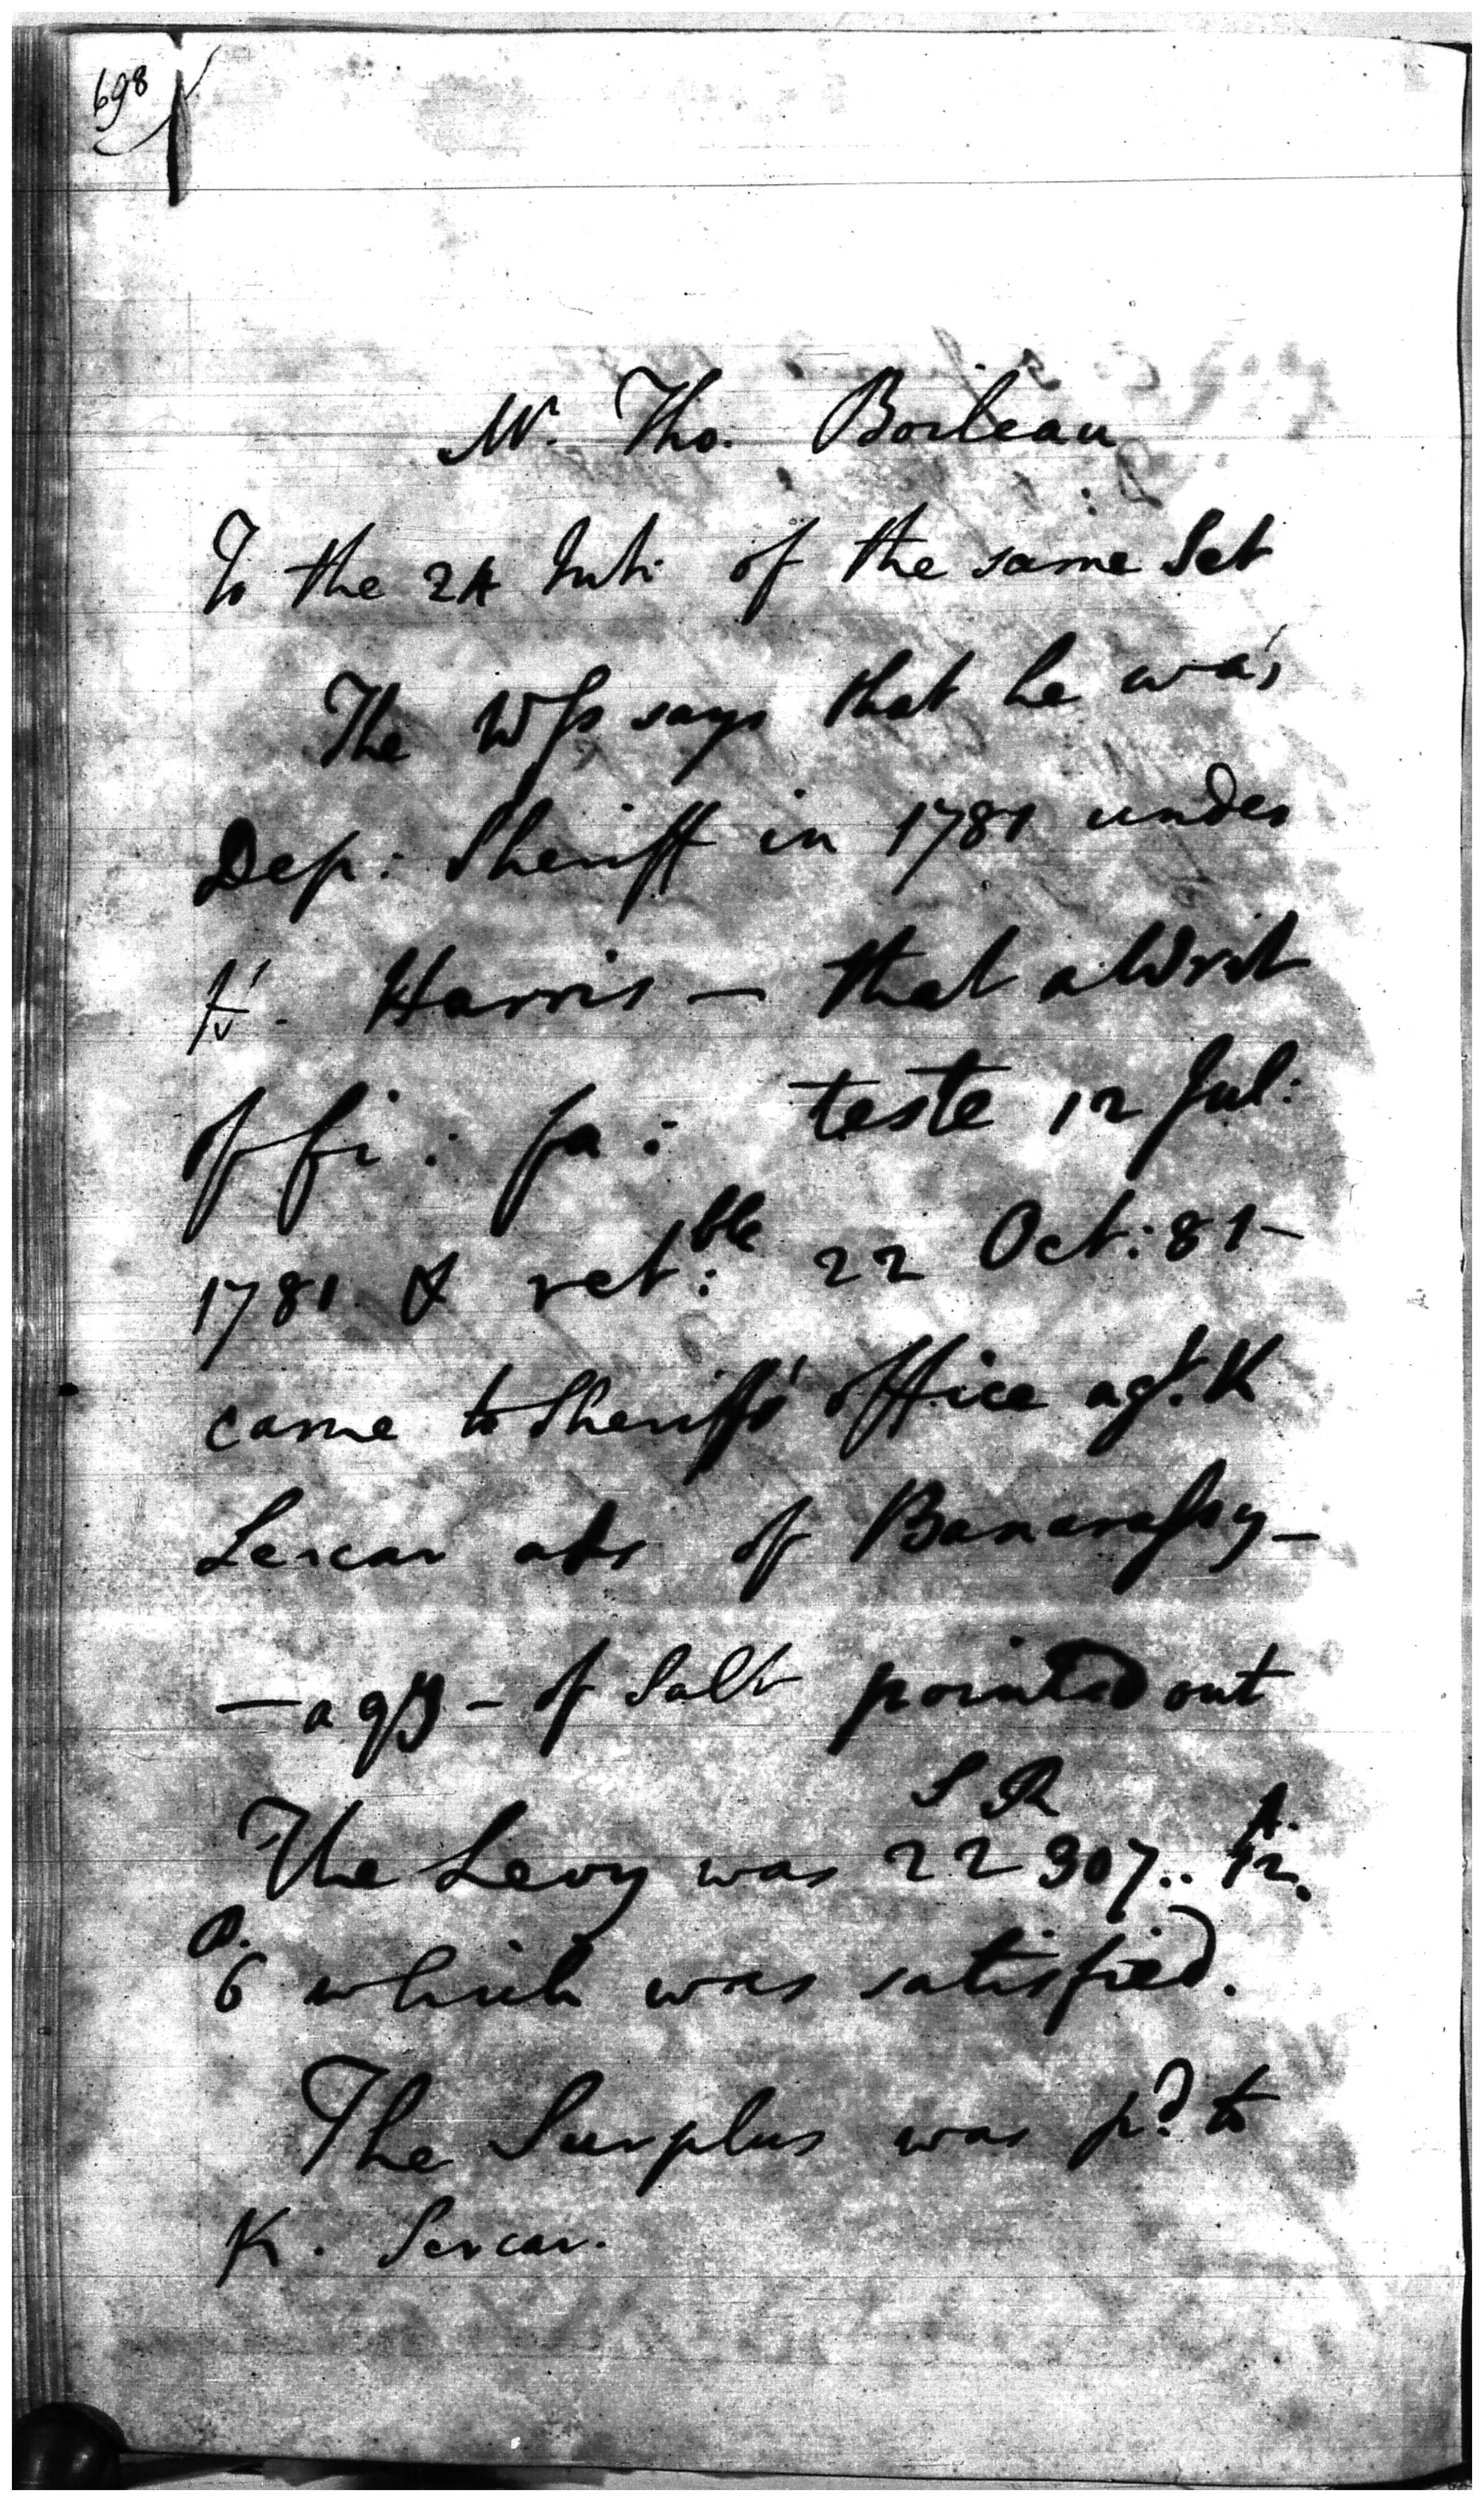 698
Mr. Tho. Boileau
To the 24 Inti of the same Set
The Wss says that he was
Dep: Sheriff in 1781 under
H. Harris — that a Writ
of fi: fa: teste 12 Jul:
1781 & ret:ble 22 Oct: 81 —
came to Sheriffs' office agt. K
Sercar ats of Banarassy —
— of Salt pointed out
S R
The Levy was 22307.. 12. A.
P.
6 which was satisfied.
The Surplus was pd. to
K. Sercar.